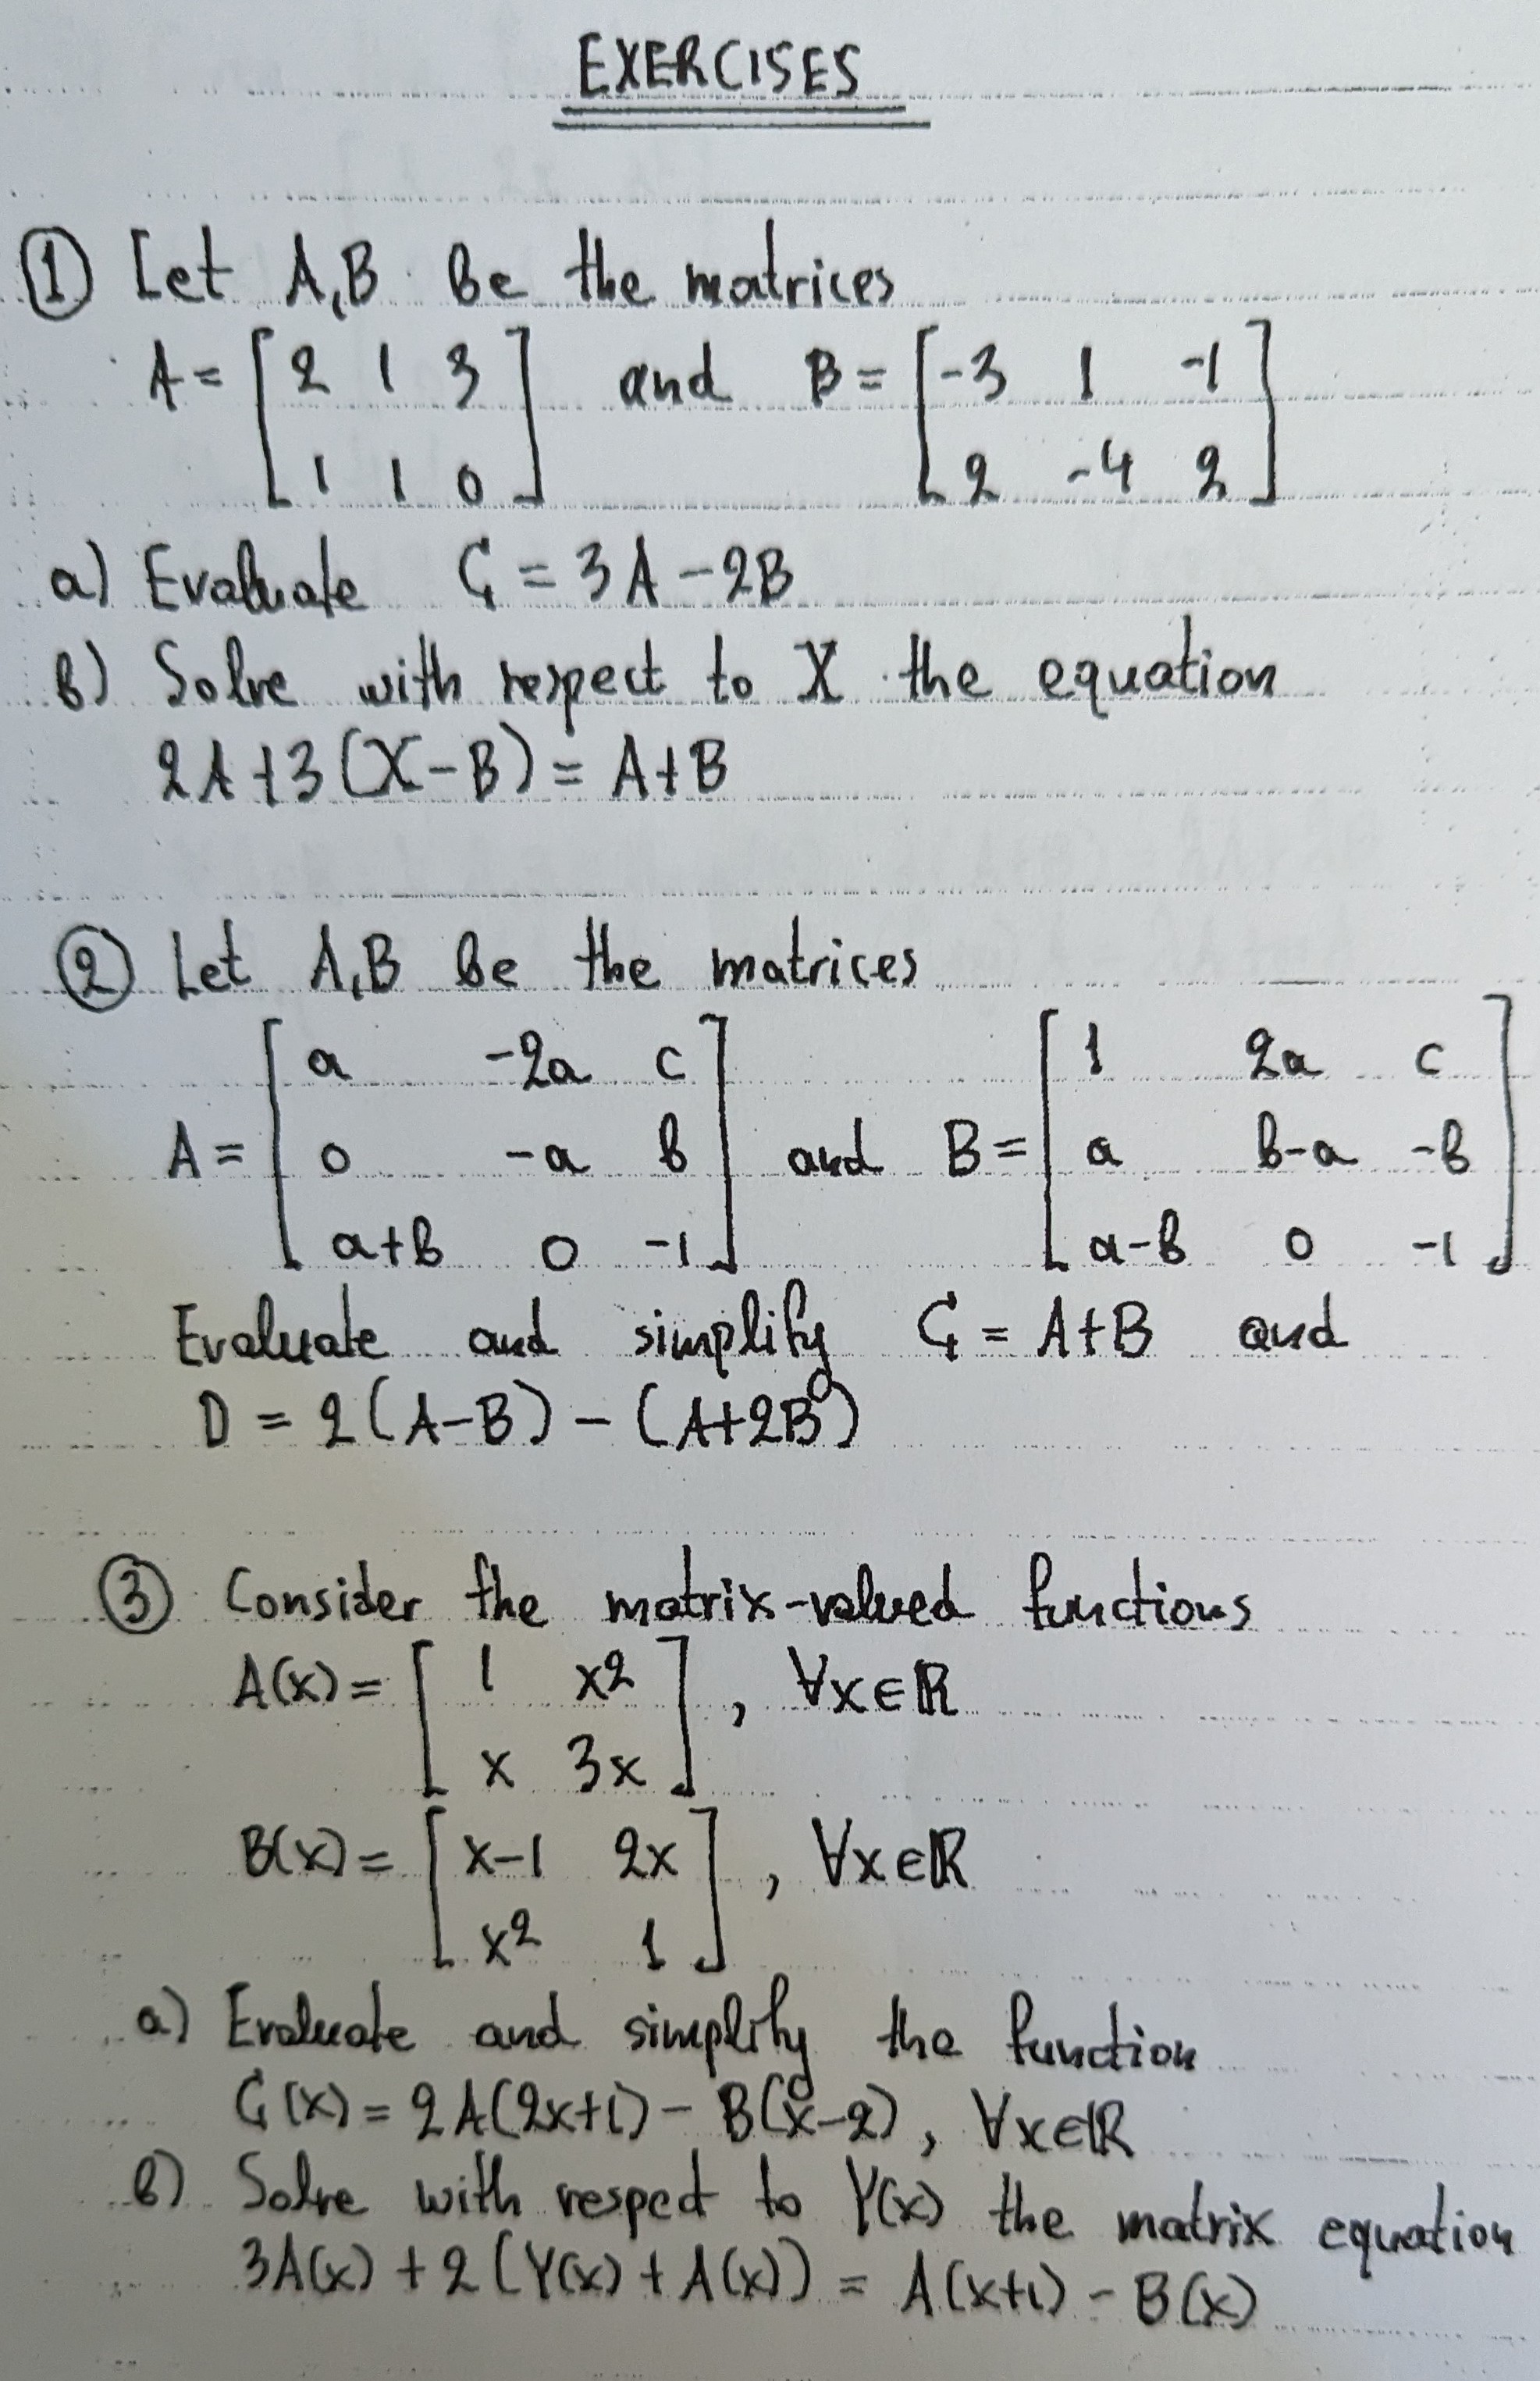 EXERCISES
① Let A,B be the matrices
A = [2 1 3; 1 1 0] and B = [-3 1 -1; 2 -4 2]
a) Evaluate C = 3A - 2B
b) Solve with respect to X the equation
2A + 3(X - B) = A + B
② Let A,B be the matrices
A = [a -2a c; 0 -a b; a+b 0 -1] and B = [1 2a c; a b-a -b; a-b 0 -1]
Evaluate and simplify C = A + B and
D = 2(A - B) - (A + 2B)
③ Consider the matrix-valued functions
A(x) = [1 x2; x 3x], ∀x∈ℝ
B(x) = [x-1 2x; x2 1], ∀x∈ℝ
a) Evaluate and simplify the function
C(x) = 2A(2x+1) - B(x-2), ∀x∈ℝ
b) Solve with respect to Y(x) the matrix equation
3A(x) + 2(Y(x) + A(x)) = A(x+1) - B(x)